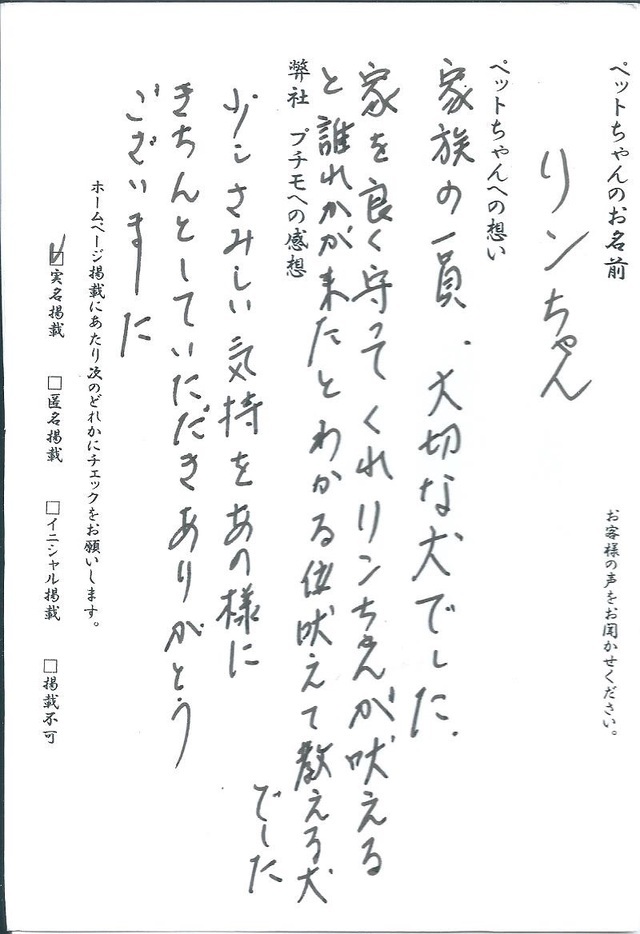 ペットちゃんのお名前
お客様の声をお聞かせください。
リンちゃん
ペットちゃんへの想い
家族の一員、大切な犬でした.
家を良く守ってくれリンちゃんが吠える
と誰れかが来たとわかる位吠えて教える犬
でした
弊社 プチモへの感想
少しさみしい気持をあの様に
きちんとしていただきありがとう
ございました
ホームページ掲載にあたり次のどれかにチェックをお願いします。
☑実名掲載 □匿名掲載 □イニシャル掲載 □掲載不可